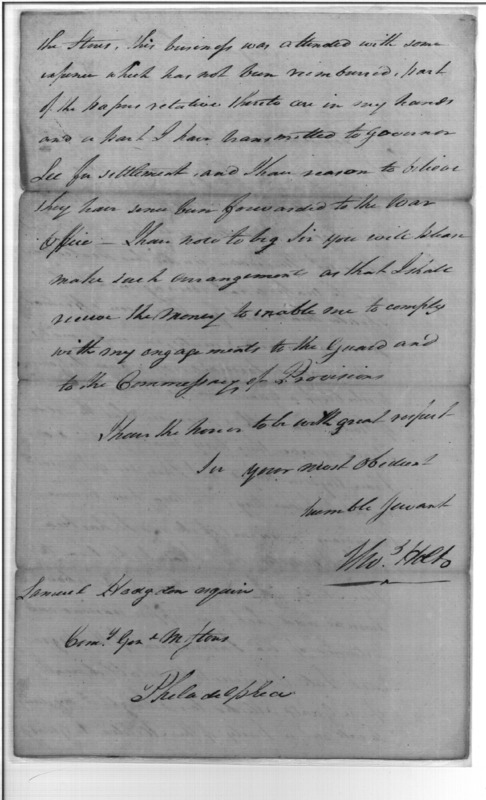 the Stores, this business was attended with some
expence which has not been reimbursed, part
of the papers relative thereto are in my hands
and a part I have transmitted to Governor
Lee for settlement, and I have reason to believe
they have since been forwarded to the War
Office – I have now to beg Sir you will please
make such arrangement as that I shall
receive the money to enable me to comply
with my engagements to the Guard and
to the Commessary of Provisions
I have the honor to be with great respect
Sir your most obedient
humble Servant
Tho.s Holt
Samuel Hodgdon esquire
Com.y Gen.l M. Stores
Philadelphia